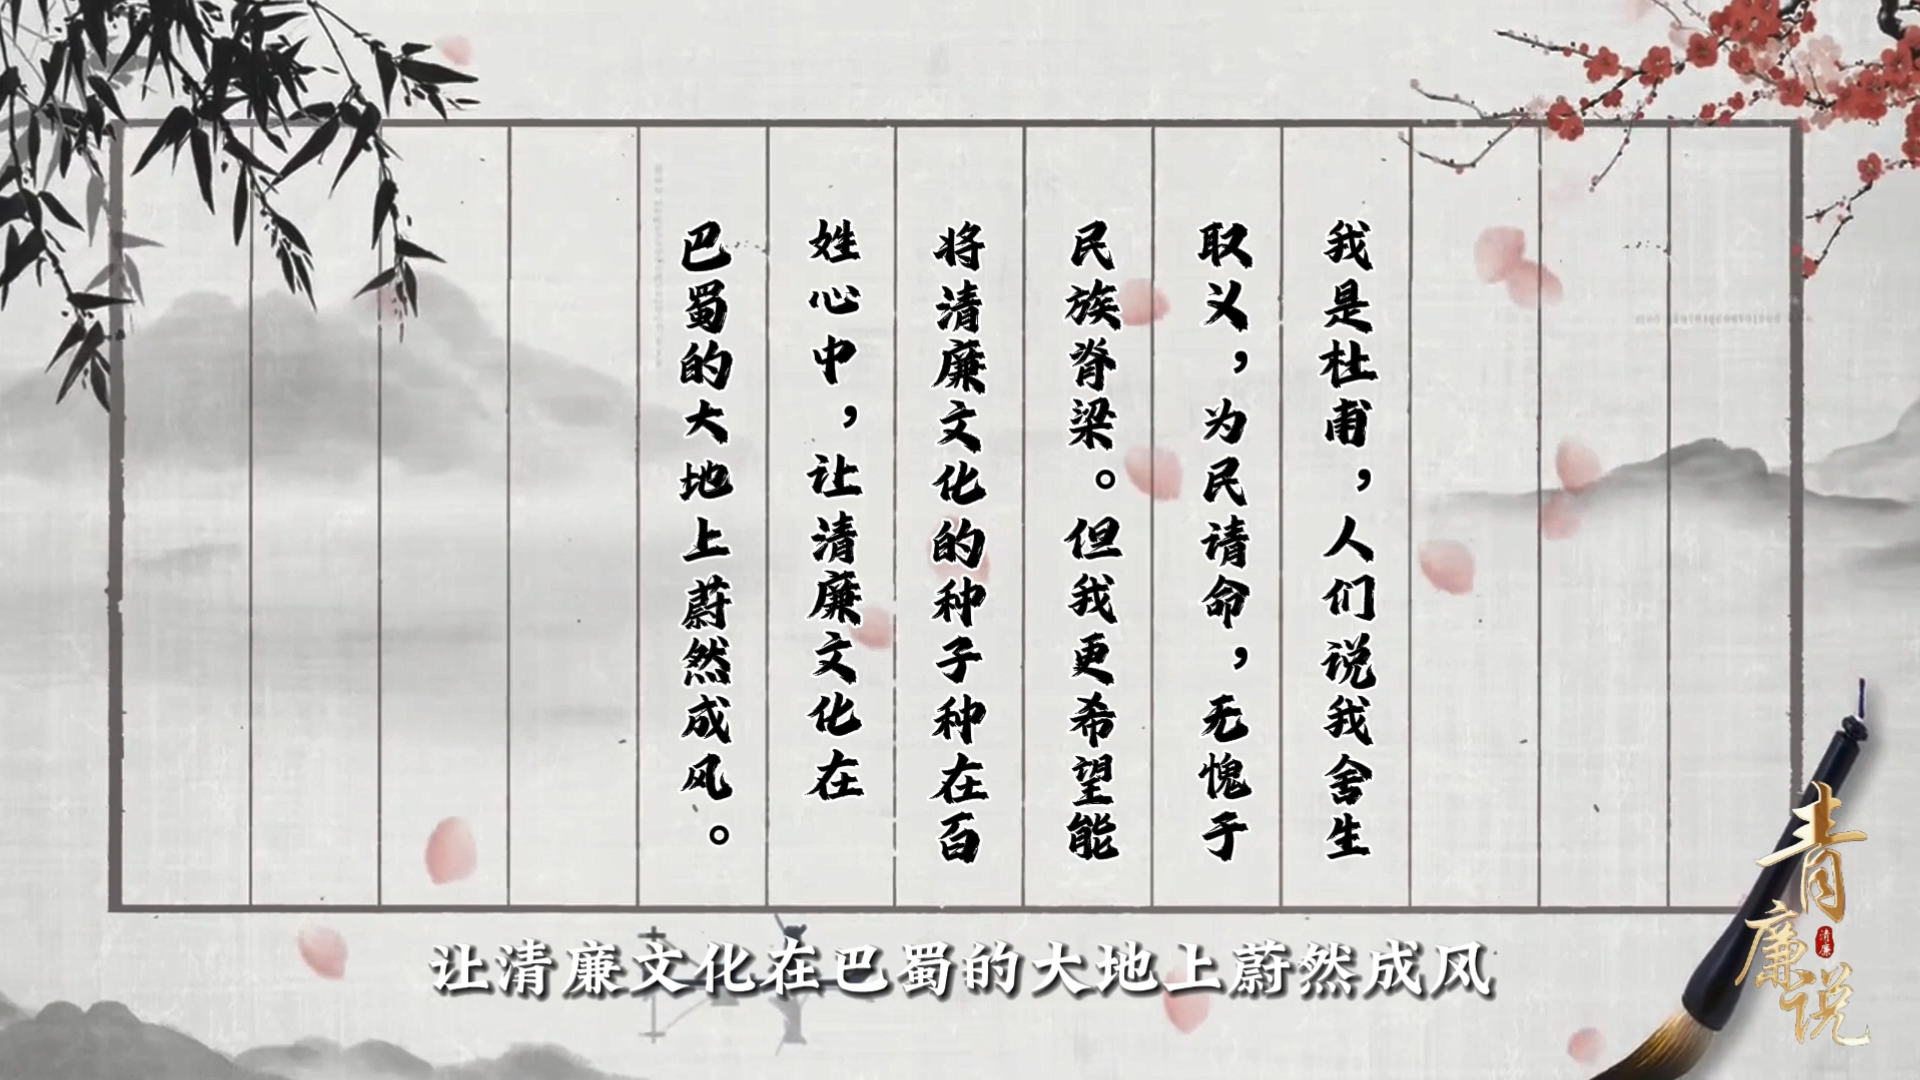 我是杜甫，人们说我舍生
取义，为民请命，无愧于
民族脊梁。但我更希望能
将清廉文化的种子种在百
姓心中，让清廉文化在
巴蜀的大地上蔚然成风。
让清廉文化在巴蜀的大地上蔚然成风
青廉说
清廉